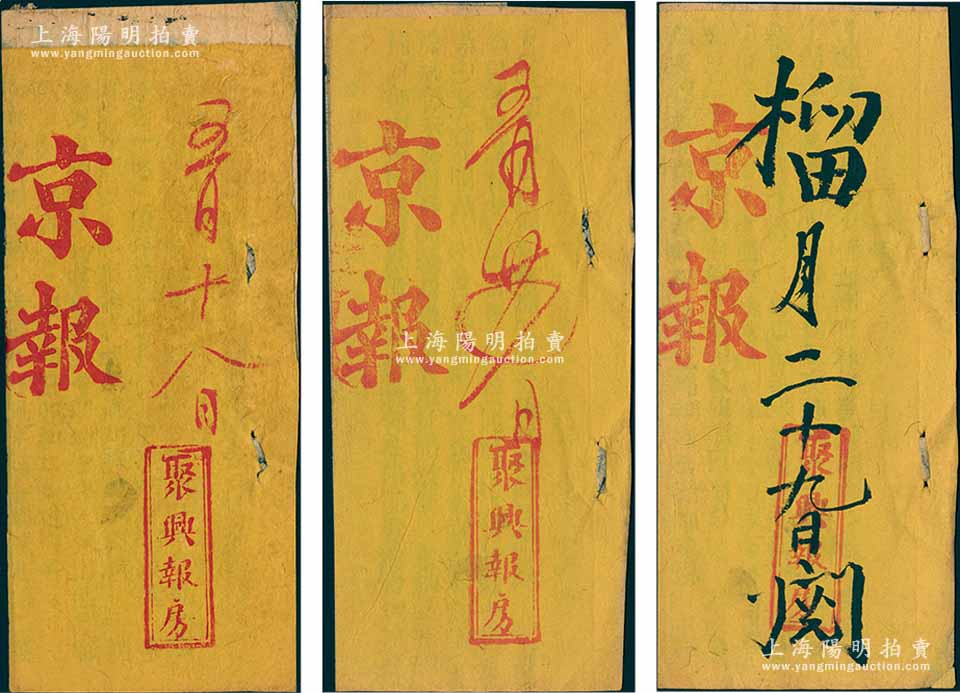 上海陽明拍賣
www.yangmingauction.com
京報
五月十八日
聚興報房
京報
五月廿
日
聚興報房
上海陽明拍賣
www.yangmingauction.com
京報
榴月二十九日閱
聚興報房
上海陽明拍賣
www.yangmingauction.com